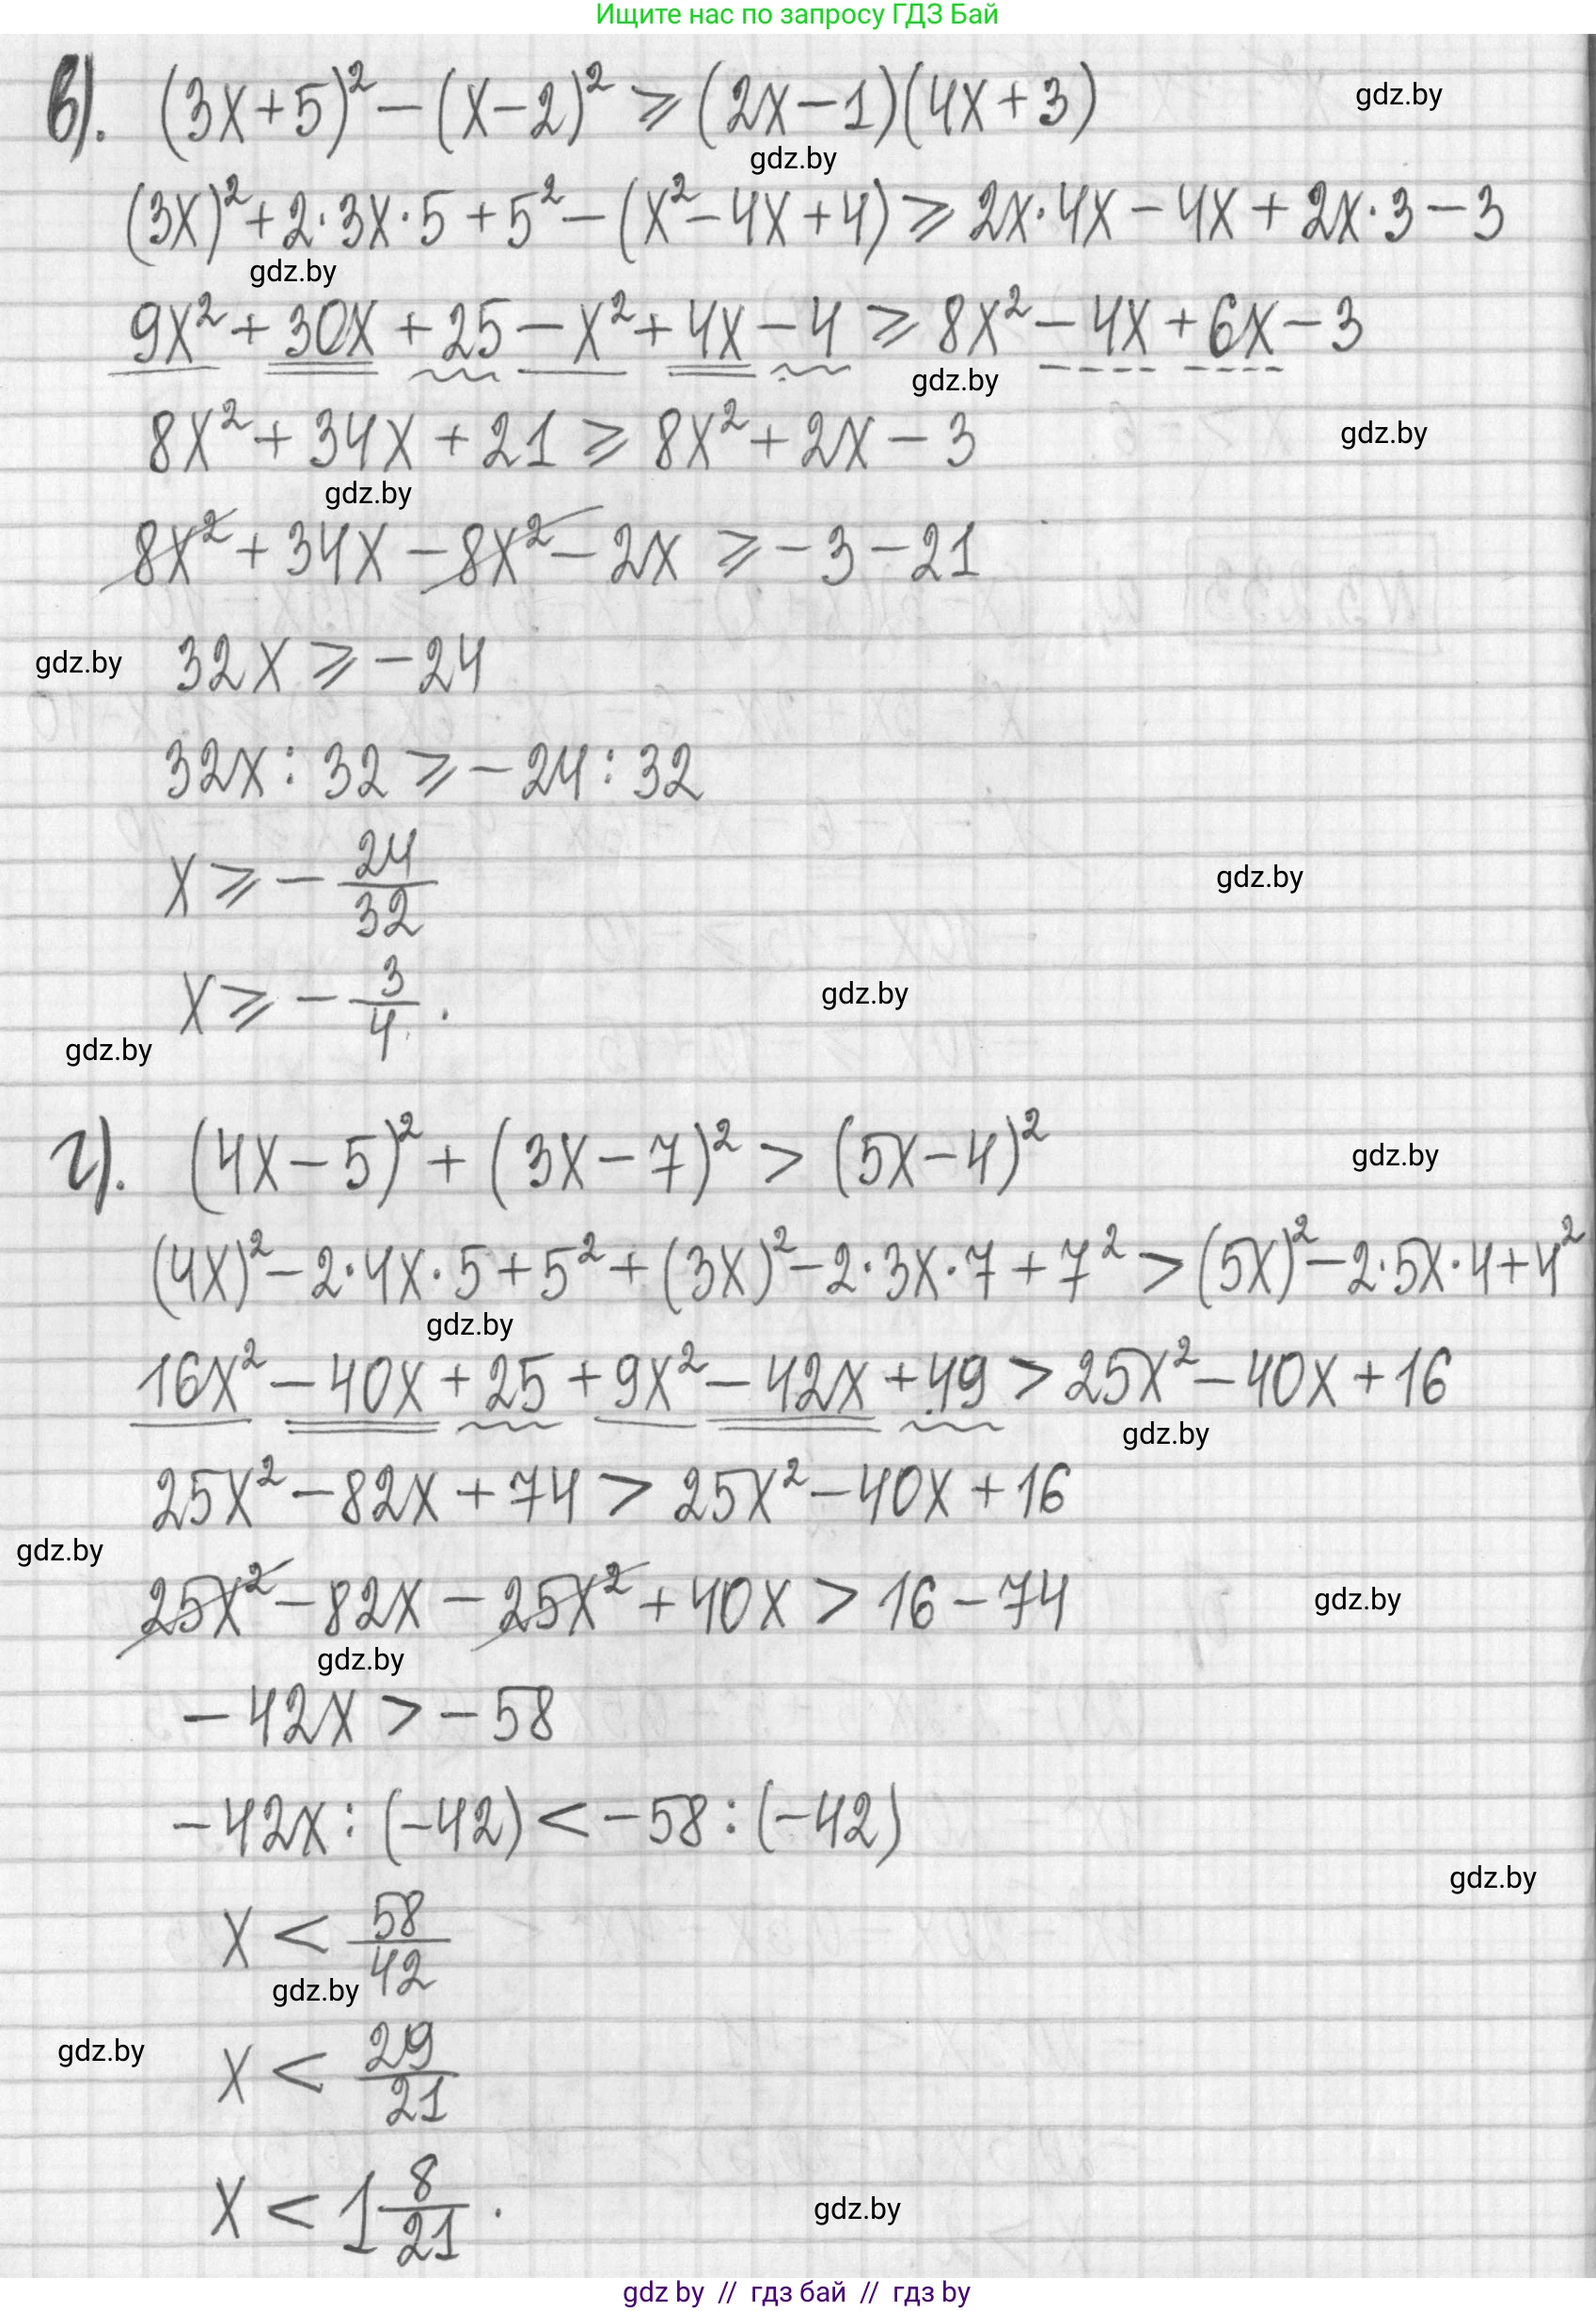 Ищите нас по запросу ГДЗ Бай
в). (3x+5)² − (x−2)² ⩾ (2x−1)(4x+3)
gdz.by
gdz.by
(3x)² + 2·3x·5 + 5² − (x² − 4x + 4) ⩾ 2x·4x − 4x + 2x·3 − 3
gdz.by
9x² + 30x + 25 − x² + 4x − 4 ⩾ 8x² − 4x + 6x − 3
gdz.by
8x² + 34x + 21 ⩾ 8x² + 2x − 3
gdz.by
gdz.by
8x² + 34x − 8x² − 2x ⩾ −3 − 21
32x ⩾ −24
gdz.by
32x : 32 ⩾ −24 : 32
x ⩾ − 24/32
gdz.by
x ⩾ − 3/4.
gdz.by
gdz.by
г). (4x−5)² + (3x−7)² > (5x−4)²
gdz.by
(4x)² − 2·4x·5 + 5² + (3x)² − 2·3x·7 + 7² > (5x)² − 2·5x·4 + 4²
gdz.by
16x² − 40x + 25 + 9x² − 42x + 49 > 25x² − 40x + 16
gdz.by
25x² − 82x + 74 > 25x² − 40x + 16
gdz.by
25x² − 82x − 25x² + 40x > 16 − 74
gdz.by
gdz.by
−42x > −58
−42x : (−42) < −58 : (−42)
gdz.by
x < 58/42
gdz.by
x < 29/21
gdz.by
x < 1 8/21.
gdz.by
gdz by // гдз бай // гдз by